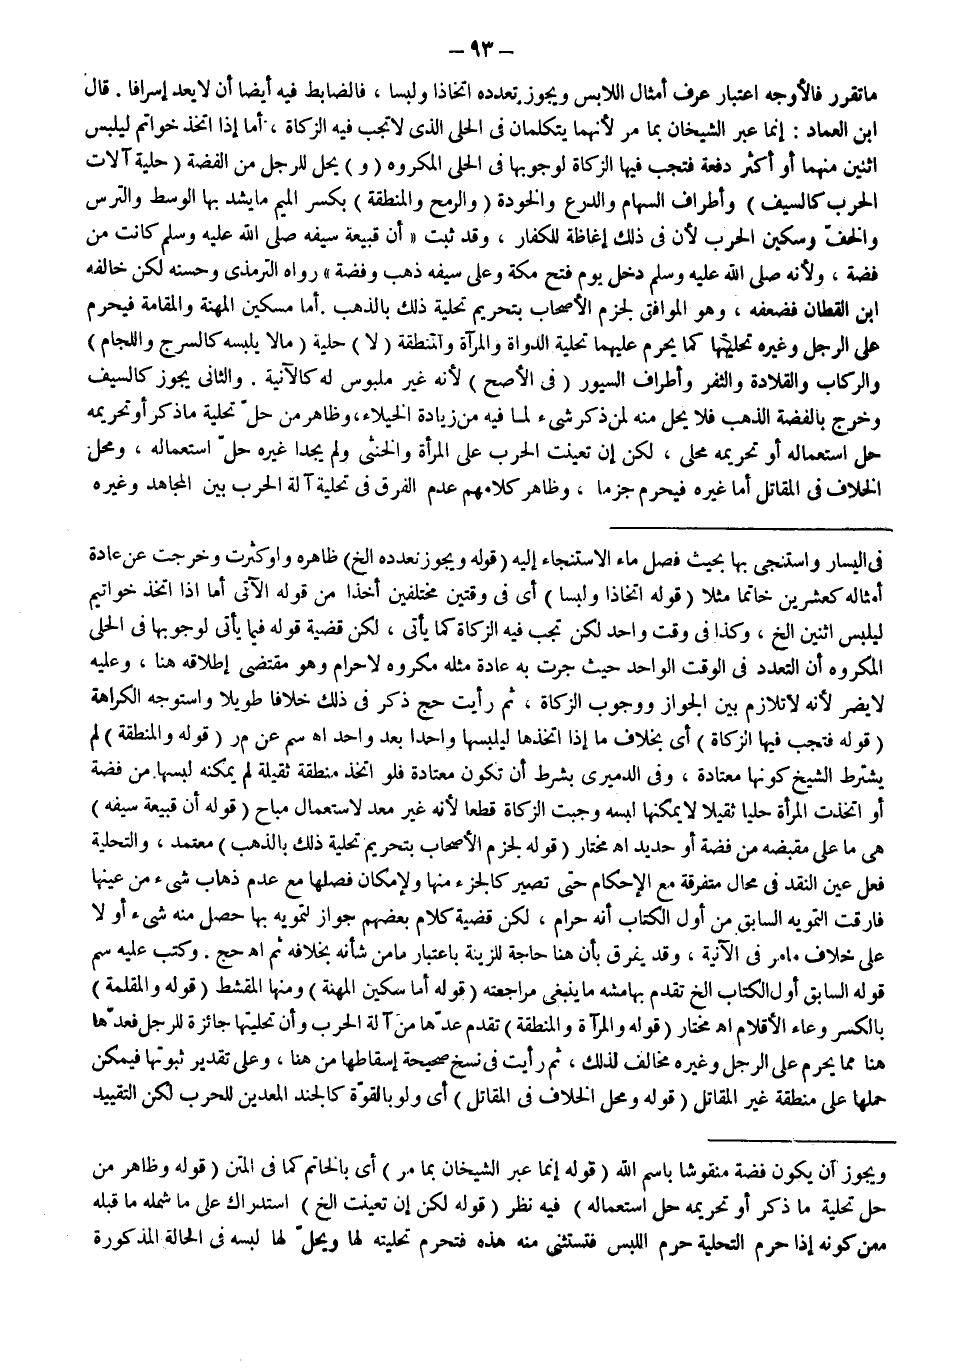 – ٩٣ –
ماتقرر فالأوجه اعتبار عرف أمثال اللابس ويجوز تعدده اتخاذا ولبسا ، فالضابط فيه أيضا أن لايعد إسرافا . قال
ابن العماد : إنما عبر الشيخان بما مر لأنهما يتكلمان فى الحلى الذى لاتجب فيه الزكاة ، أما إذا اتخذ خواتم ليلبس
اثنين منهما أو أكثر دفعة فتجب فيها الزكاة لوجوبها فى الحلى المكروه ( و ) يحل للرجل من الفضة ( حلية آلات
الحرب كالسيف ) وأطراف السهام والدرع والخودة ( والرمح والمنطقة ) بكسر الميم مايشد بها الوسط والترس
والخفّ وسكين الحرب لأن فى ذلك إغاظة للكفار ، وقد ثبت « أن قبيعة سيفه صلى الله عليه وسلم كانت من
فضة ، ولأنه صلى الله عليه وسلم دخل يوم فتح مكة وعلى سيفه ذهب وفضة » رواه الترمذى وحسنه لكن خالفه
ابن القطان فضعفه ، وهو الموافق لجزم الأصحاب بتحريم تحلية ذلك بالذهب . أما مسكين المهنة والمقامة فيحرم
على الرجل وغيره تحليتها كما يحرم عليهما تحلية الدواة والمرآة والمنطقة ( لا ) حلية ( مالا يلبسه كالسرج واللجام )
والركاب والقلادة والثفر وأطراف السيور ( فى الأصح ) لأنه غير ملبوس له كالآنية . والثانى يجوز كالسيف
وخرج بالفضة الذهب فلا يحل منه لمن ذكر شىء لما فيه من زيادة الخيلاء، وظاهر من حلّ تحلية ماذكر أوتحريمه
حل استعماله أو تحريمه محلى ، لكن إن تعينت الحرب على المرأة والخنثى ولم يجدا غيره حلّ استعماله ، ومحل
الخلاف فى المقاتل أما غيره فيحرم جزما ، وظاهر كلامهم عدم الفرق فى تحلية آلة الحرب بين المجاهد وغيره
فى اليسار واستنجى بها بحيث فصل ماء الاستنجاء إليه ( قوله ويجوز تعدده الخ ) ظاهره واوكثرت وخرجت عن عادة
أمثاله كعشرين خاتما مثلا ( قوله اتخاذا ولبسا ) أى فى وقتين مختلفين أخذا من قوله الآتى أما اذا اتخذ خواتيم
ليلبس اثنين الخ ، وكذا فى وقت واحد لكن تجب فيه الزكاة كما يأتى ، لكن قضية قوله فيما يأتى لوجوبها فى الحلى
المكروه أن التعدد فى الوقت الواحد حيث جرت به عادة مثله مكروه لاحرام وهو مقتضى إطلاقه هنا ، وعليه
لايضر لأنه لاتلازم بين الجواز ووجوب الزكاة ، ثم رأيت حج ذكر فى ذلك خلافا طويلا واستوجه الكراهة
( قوله فتجب فيها الزكاة ) أى بخلاف ما إذا اتخذها ليلبسها واحدا بعد واحد اه سم عن مر ( قوله والمنطقة ) لم
يشترط الشيخ كونها معتادة ، وفى الدميرى بشرط أن تكون معتادة فلو اتخذ منطقة ثقيلة لم يمكنه لبسها من فضة
أو اتخذت المرأة حليا ثقيلا لايمكنها لبسه وجبت الزكاة قطعا لأنه غير معد لاستعمال مباح ( قوله أن قبيعة سيفه )
هى ما على مقبضه من فضة أو حديد اه مختار ( قوله لجزم الأصحاب بتحريم تحلية ذلك بالذهب ) معتمد ، والتحلية
فعل عين النقد فى محال متفرقة مع الإحكام حتى تصير كالجزء منها ولإمكان فصلها مع عدم ذهاب شىء من عينها
فارقت التمويه السابق من أول الكتاب أنه حرام ، لكن قضية كلام بعضهم جواز لتمويه بها حصل منه شىء أو لا
على خلاف مامر فى الآنية ، وقد يفرق بأن هنا حاجة للزينة باعتبار مامن شأنه بخلافه ثم اه حج . وكتب عليه سم
قوله السابق أول الكتاب الخ تقدم بهامشه ماينبغى مراجعته ( قوله أما سكين المهنة ) ومنها المقشط ( قوله والمقلمة )
بالكسر وعاء الأقلام اه مختار ( قوله والمرآة والمنطقة ) تقدم عدّها من آلة الحرب وأن تحليتها جائزة للرجل فعدّها
هنا مما يحرم على الرجل وغيره مخالف لذلك ، ثم رأيت فى نسخ صحيحة إسقاطها من هنا ، وعلى تقدير ثبوتها فيمكن
حملها على منطقة غير المقاتل ( قوله ومحل الخلاف فى المقاتل ) أى ولو بالقوّة كالجند المعدين للحرب لكن التقييد
ويجوز أن يكون فضة منقوشا باسم الله ( قوله إنما عبر الشيخان بما مر ) أى بالخاتم كما فى المتن ( قوله وظاهر من
حل تحلية ما ذكر أو تحريمه حل استعماله ) فيه نظر ( قوله لكن إن تعينت الخ ) استدراك على ما شمله ما قبله
ممن كونه إذا حرم التحلية حرم اللبس فتستثنى منه هذه فتحرم تحليته لها ويحلّ لها لبسه فى الحالة المذكورة